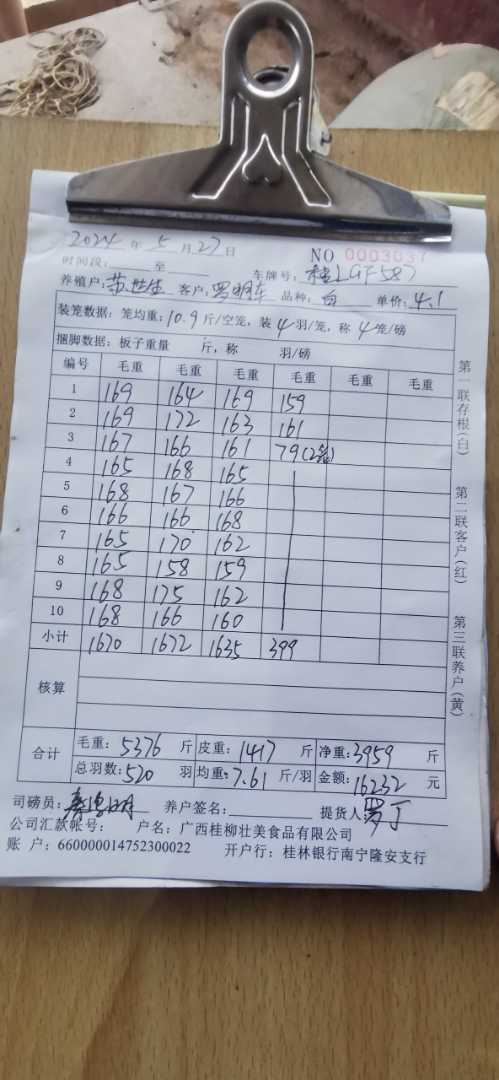 2024 年 5 月 27 日
NO 0003037
时间段: 至 车牌号: 桂LGF587
养殖户: 苏世生 客户: 罗明车 品种: 白 单价: 4.1
装笼数据: 笼均重: 10.9 斤/空笼, 装 4 羽/笼, 称 4 笼/磅
捆脚数据: 板子重量 斤, 称 羽/磅
编号 毛重 毛重 毛重 毛重 毛重 毛重
1 169 164 169 159
2 169 172 163 161
3 167 166 161 79(2笼)
4 165 168 165
5 168 167 166
6 166 166 168
7 165 170 162
8 165 158 159
9 168 175 162
10 168 166 160
小计 1670 1672 1635 399
核算
合计 毛重: 5376 斤 皮重: 1417 斤 净重: 3959 斤
总羽数: 520 羽 均重: 7.61 斤/羽 金额: 16232 元
司磅员: 养户签名: 提货人 罗丁
公司汇款帐号: 户名: 广西桂柳壮美食品有限公司
账 户: 660000014752300022 开户行: 桂林银行南宁隆安支行
第一联存根(白)
第二联客户(红)
第三联养户(黄)